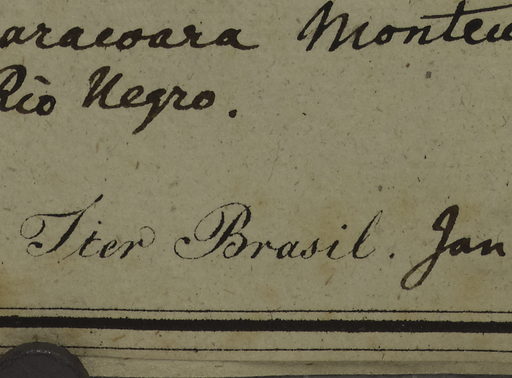 aracoara Monteu
Rio Negro.
Iter Brasil. Jan